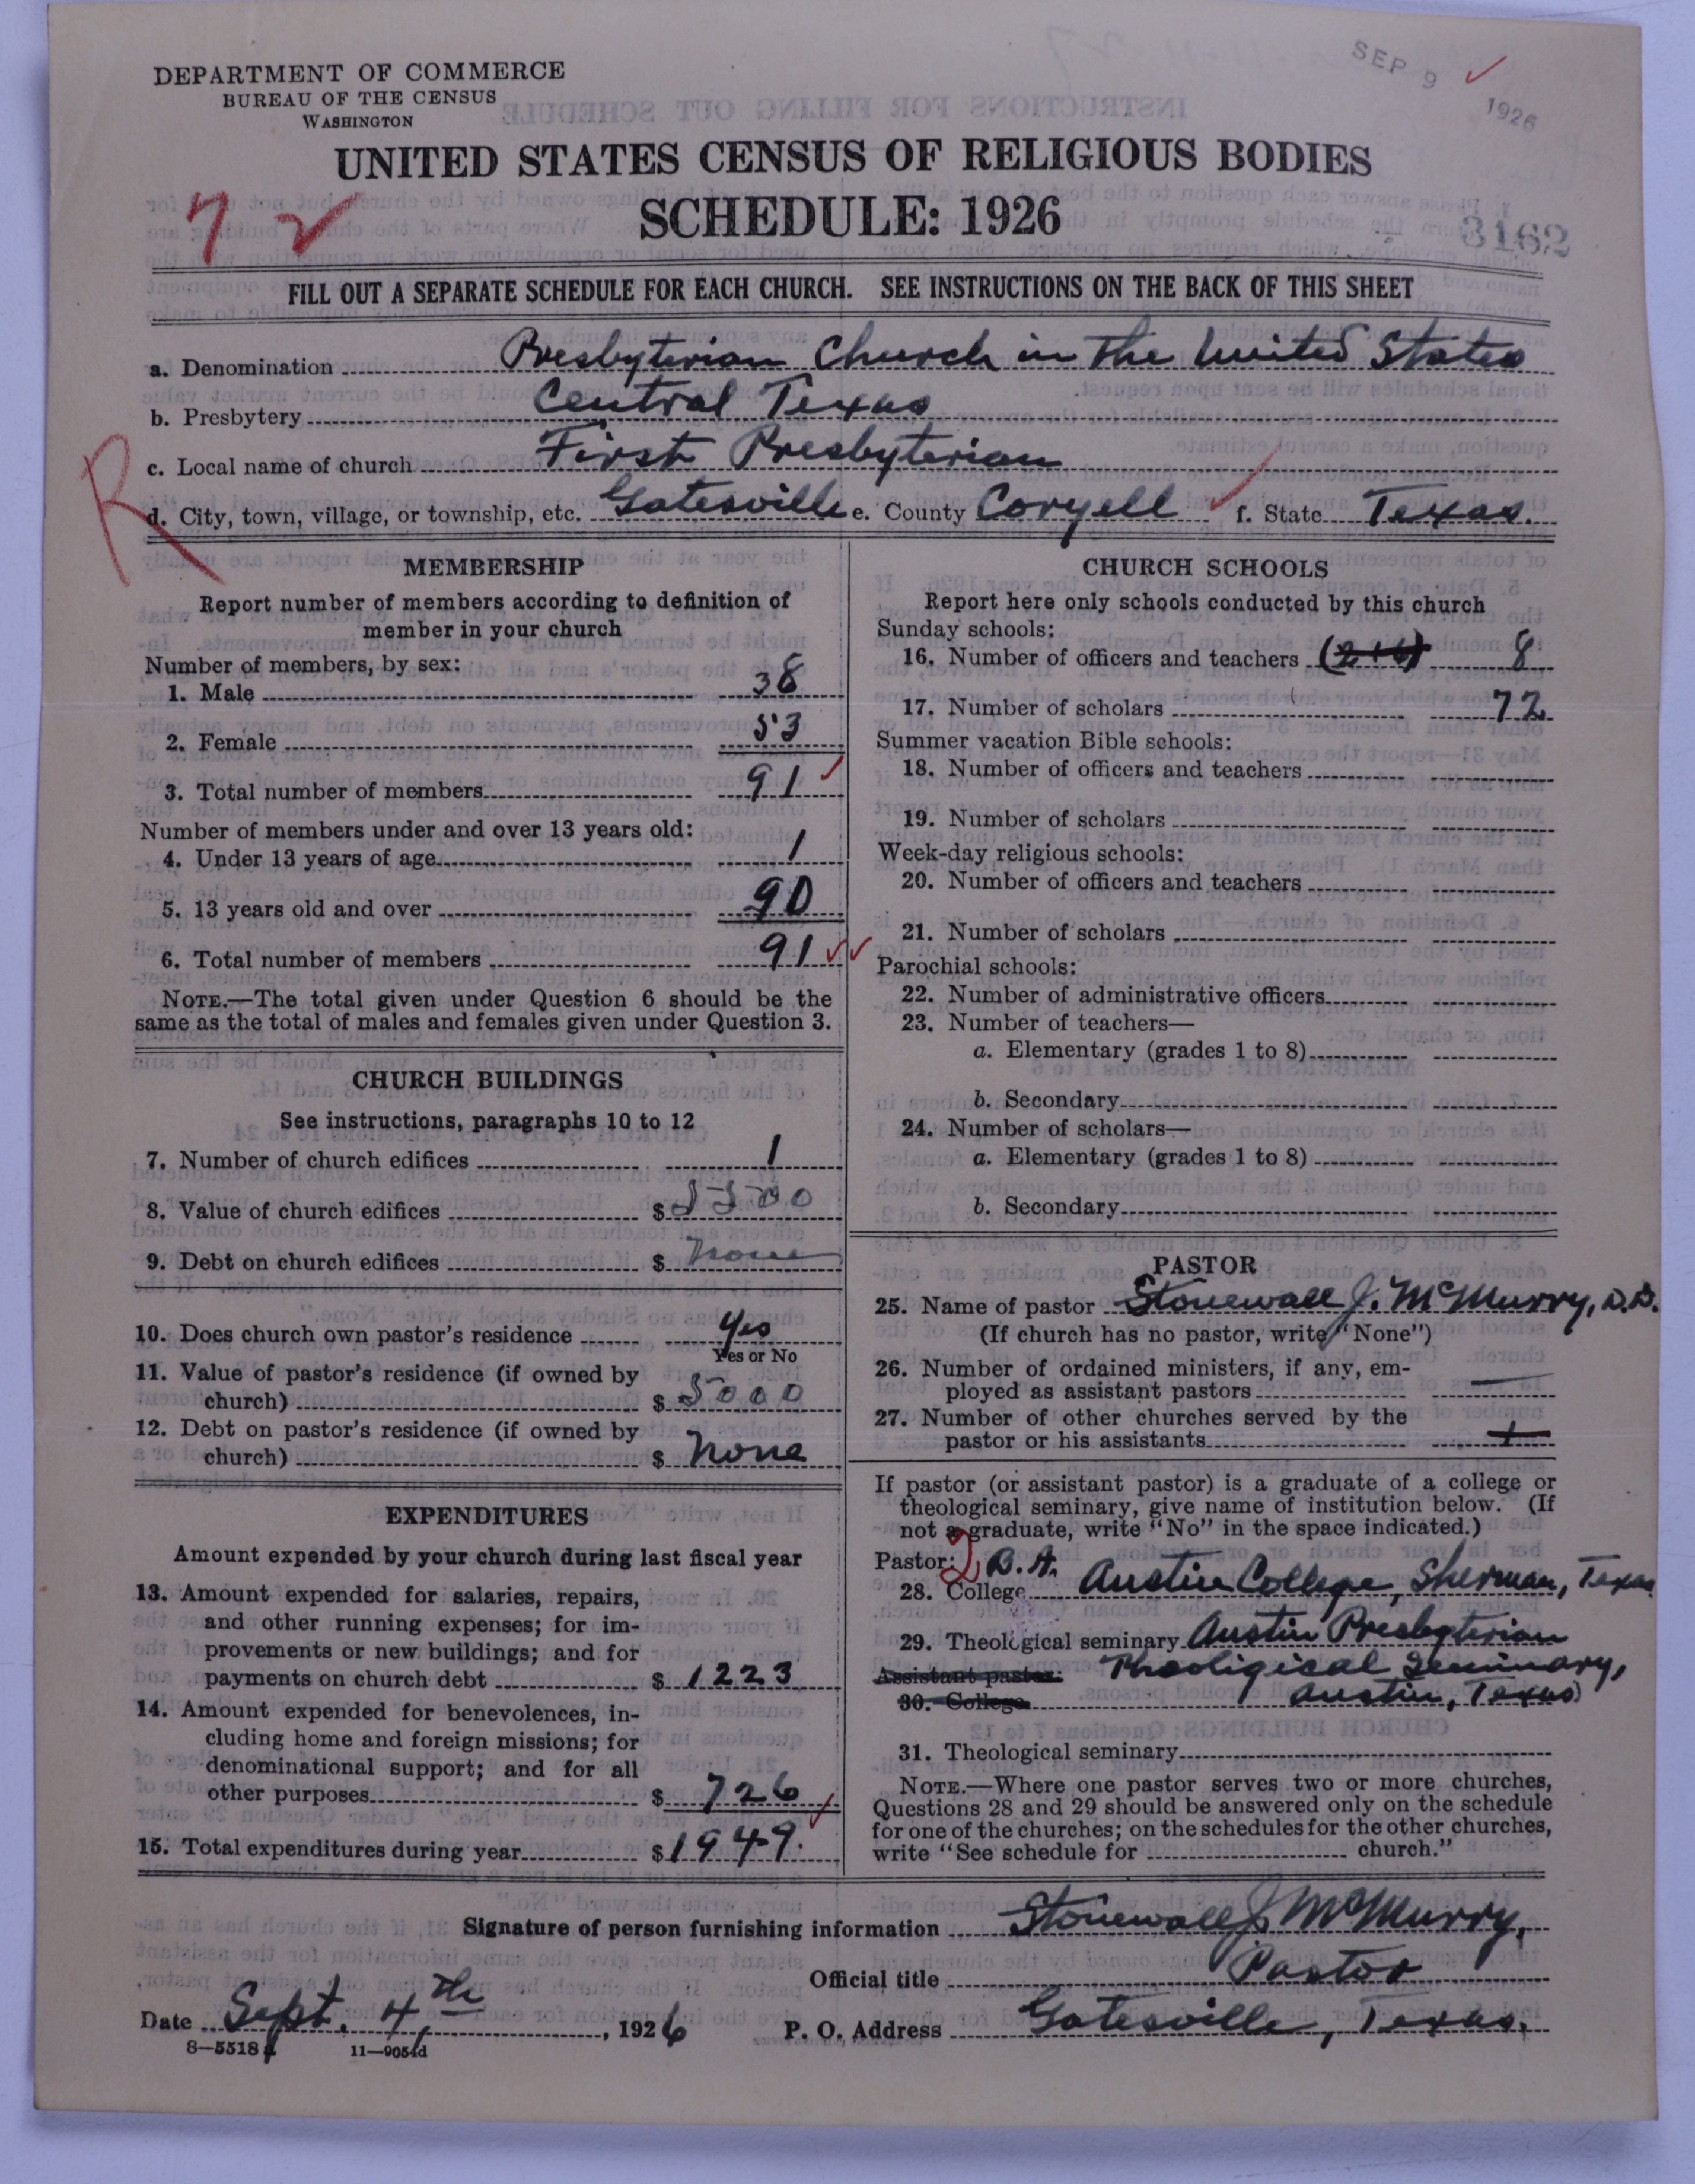 DEPARTMENT OF COMMERCE
BUREAU OF THE CENSUS
WASHINGTON
SEP 9 1926
UNITED STATES CENSUS OF RELIGIOUS BODIES
SCHEDULE: 1926
3162
FILL OUT A SEPARATE SCHEDULE FOR EACH CHURCH. SEE INSTRUCTIONS ON THE BACK OF THIS SHEET
a. Denomination Presbyterian Church in the United States
b. Presbytery Central Texas
c. Local name of church First Presbyterian
R
d. City, town, village, or township, etc. Gatesville e. County Coryell f. State Texas.
MEMBERSHIP
Report number of members according to definition of
member in your church
Number of members, by sex:
1. Male 38
2. Female 53
3. Total number of members 91
Number of members under and over 13 years old:
4. Under 13 years of age 1
5. 13 years old and over 90
6. Total number of members 91
NOTE.—The total given under Question 6 should be the
same as the total of males and females given under Question 3.
CHURCH BUILDINGS
See instructions, paragraphs 10 to 12
7. Number of church edifices 1
8. Value of church edifices $ 5500
9. Debt on church edifices $ none
10. Does church own pastor's residence Yes
Yes or No
11. Value of pastor's residence (if owned by
church) $ 5000
12. Debt on pastor's residence (if owned by
church) $ none
EXPENDITURES
Amount expended by your church during last fiscal year
13. Amount expended for salaries, repairs,
and other running expenses; for im-
provements or new buildings; and for
payments on church debt $ 1223
14. Amount expended for benevolences, in-
cluding home and foreign missions; for
denominational support; and for all
other purposes $ 726
15. Total expenditures during year $ 1949.
CHURCH SCHOOLS
Report here only schools conducted by this church
Sunday schools:
16. Number of officers and teachers (2+6) 8
17. Number of scholars 72
Summer vacation Bible schools:
18. Number of officers and teachers
19. Number of scholars
Week-day religious schools:
20. Number of officers and teachers
21. Number of scholars
Parochial schools:
22. Number of administrative officers
23. Number of teachers—
a. Elementary (grades 1 to 8)
b. Secondary
24. Number of scholars—
a. Elementary (grades 1 to 8)
b. Secondary
PASTOR
25. Name of pastor Stonewall J. McMurry, D.D.
(If church has no pastor, write "None")
26. Number of ordained ministers, if any, em-
ployed as assistant pastors —
27. Number of other churches served by the
pastor or his assistants
If pastor (or assistant pastor) is a graduate of a college or
theological seminary, give name of institution below. (If
not a graduate, write "No" in the space indicated.)
Pastor: 2 B.A.
28. College Austin College, Sherman, Texas
29. Theological seminary Austin Presbyterian
Assistant pastor: Theoligical Seminary,
30. College Austin, Texas
31. Theological seminary
NOTE.—Where one pastor serves two or more churches,
Questions 28 and 29 should be answered only on the schedule
for one of the churches; on the schedules for the other churches,
write "See schedule for church."
Signature of person furnishing information Stonewall J. McMurry,
Official title Pastor
Date Sept. 4th, 1926 P. O. Address Gatesville, Texas.
8—5518
11—9054d